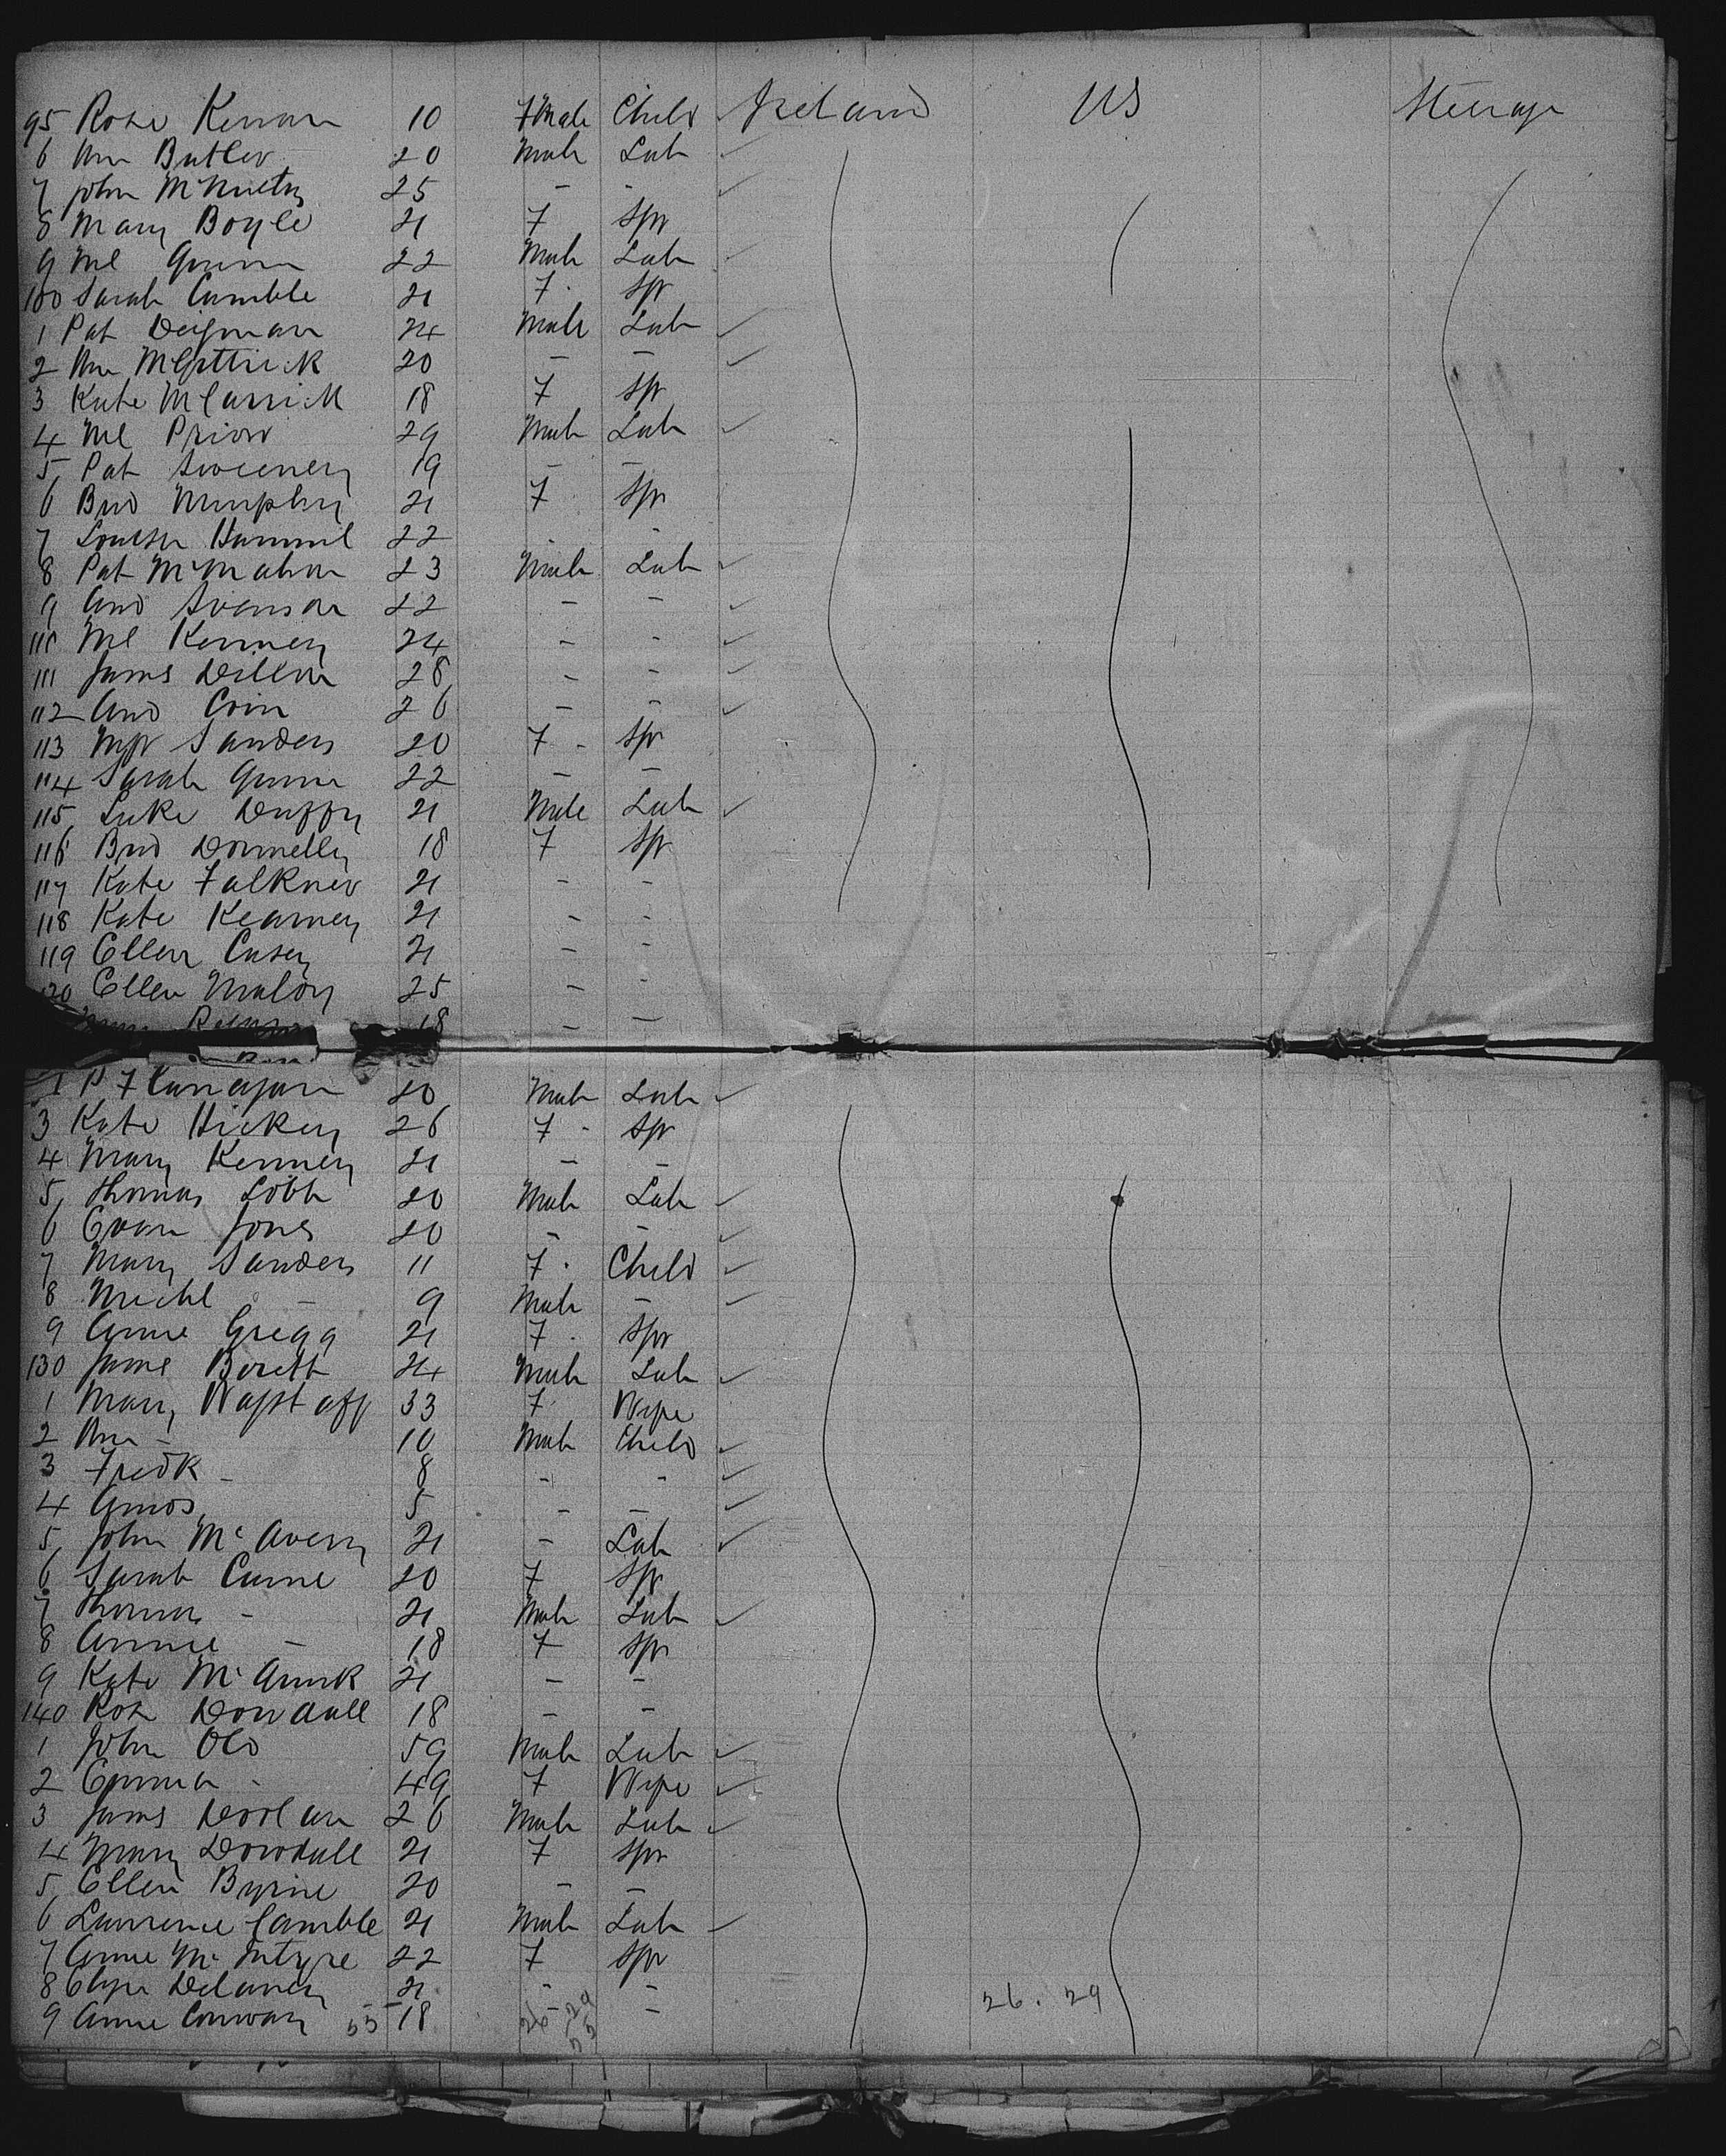 95 Rose Kernan 10 Fmale Child Ireland US Steerage
6 Wm Butler 20 Male Lab
7 John McNulty 25 - -
8 Mary Boyle 21 F Spr
9 Ml Gunn 22 Male Lab
100 Sarah Camble 21 F. Spr
1 Pat Deignan 24 Male Lab
2 Wm McGettrick 20 - -
3 Kate McCarrick 18 F Spr
4 Ml Prior 29 Male Lab
5 Pat Sweeney 19 - -
6 Brid Murphy 21 F Spr
7 Louisa Hammil 22 - -
8 Pat McMahon 23 Male Lab
9 And Svenson 22 - -
110 Ml Kenney 24 - -
111 James Dillon 28 - -
112 And Coin 26 - -
113 Mgt Sanders 20 F - Spr
114 Sarah Gunn 22 - -
115 Luke Duffy 21 Male Lab
116 Brid Donnelly 18 F Spr
117 Kate Falkner 21 - -
118 Kate Kearney 21 - -
119 Ellen Casey 21 - -
120 Ellen Maloy 25 - -
18 - -
P Flanagan 20 Male Lab
3 Kate Hickey 26 F - Spr
4 Mary Kenney 21 - -
5 Thomas Lobb 20 Male Lab
6 Evan Jones 20 - -
7 Mary Sanders 11 F. Child
8 Michl - 9 Male -
9 Annie Gregg 21 F. Spr
130 James 24 Male Lab
1 Mary Wagstaff 33 F Wife
2 Wm - 10 Male Child
3 Fredk - 8 - -
4 Amos 5 - -
5 John McAveny 21 - Lab
6 Sarah Carne 20 F Spr
7 Thomas - 21 Male Lab
8 Annie - 18 F Spr
9 Kate 21 - -
140 Rose Dowdall 18 - -
1 John Old 59 Male Lab
2 Emma - 49 F Wife
3 James Doolan 26 Male Lab
4 Mary Dowdall 21 F Spr
5 Ellen Byrne 20 - -
6 Lawrence Camble 21 Male Lab
7 Annie McIntyre 22 F Spr
8 Eliza Delaney 21 - -
9 Annie Conway 55 18 - - 26. 29